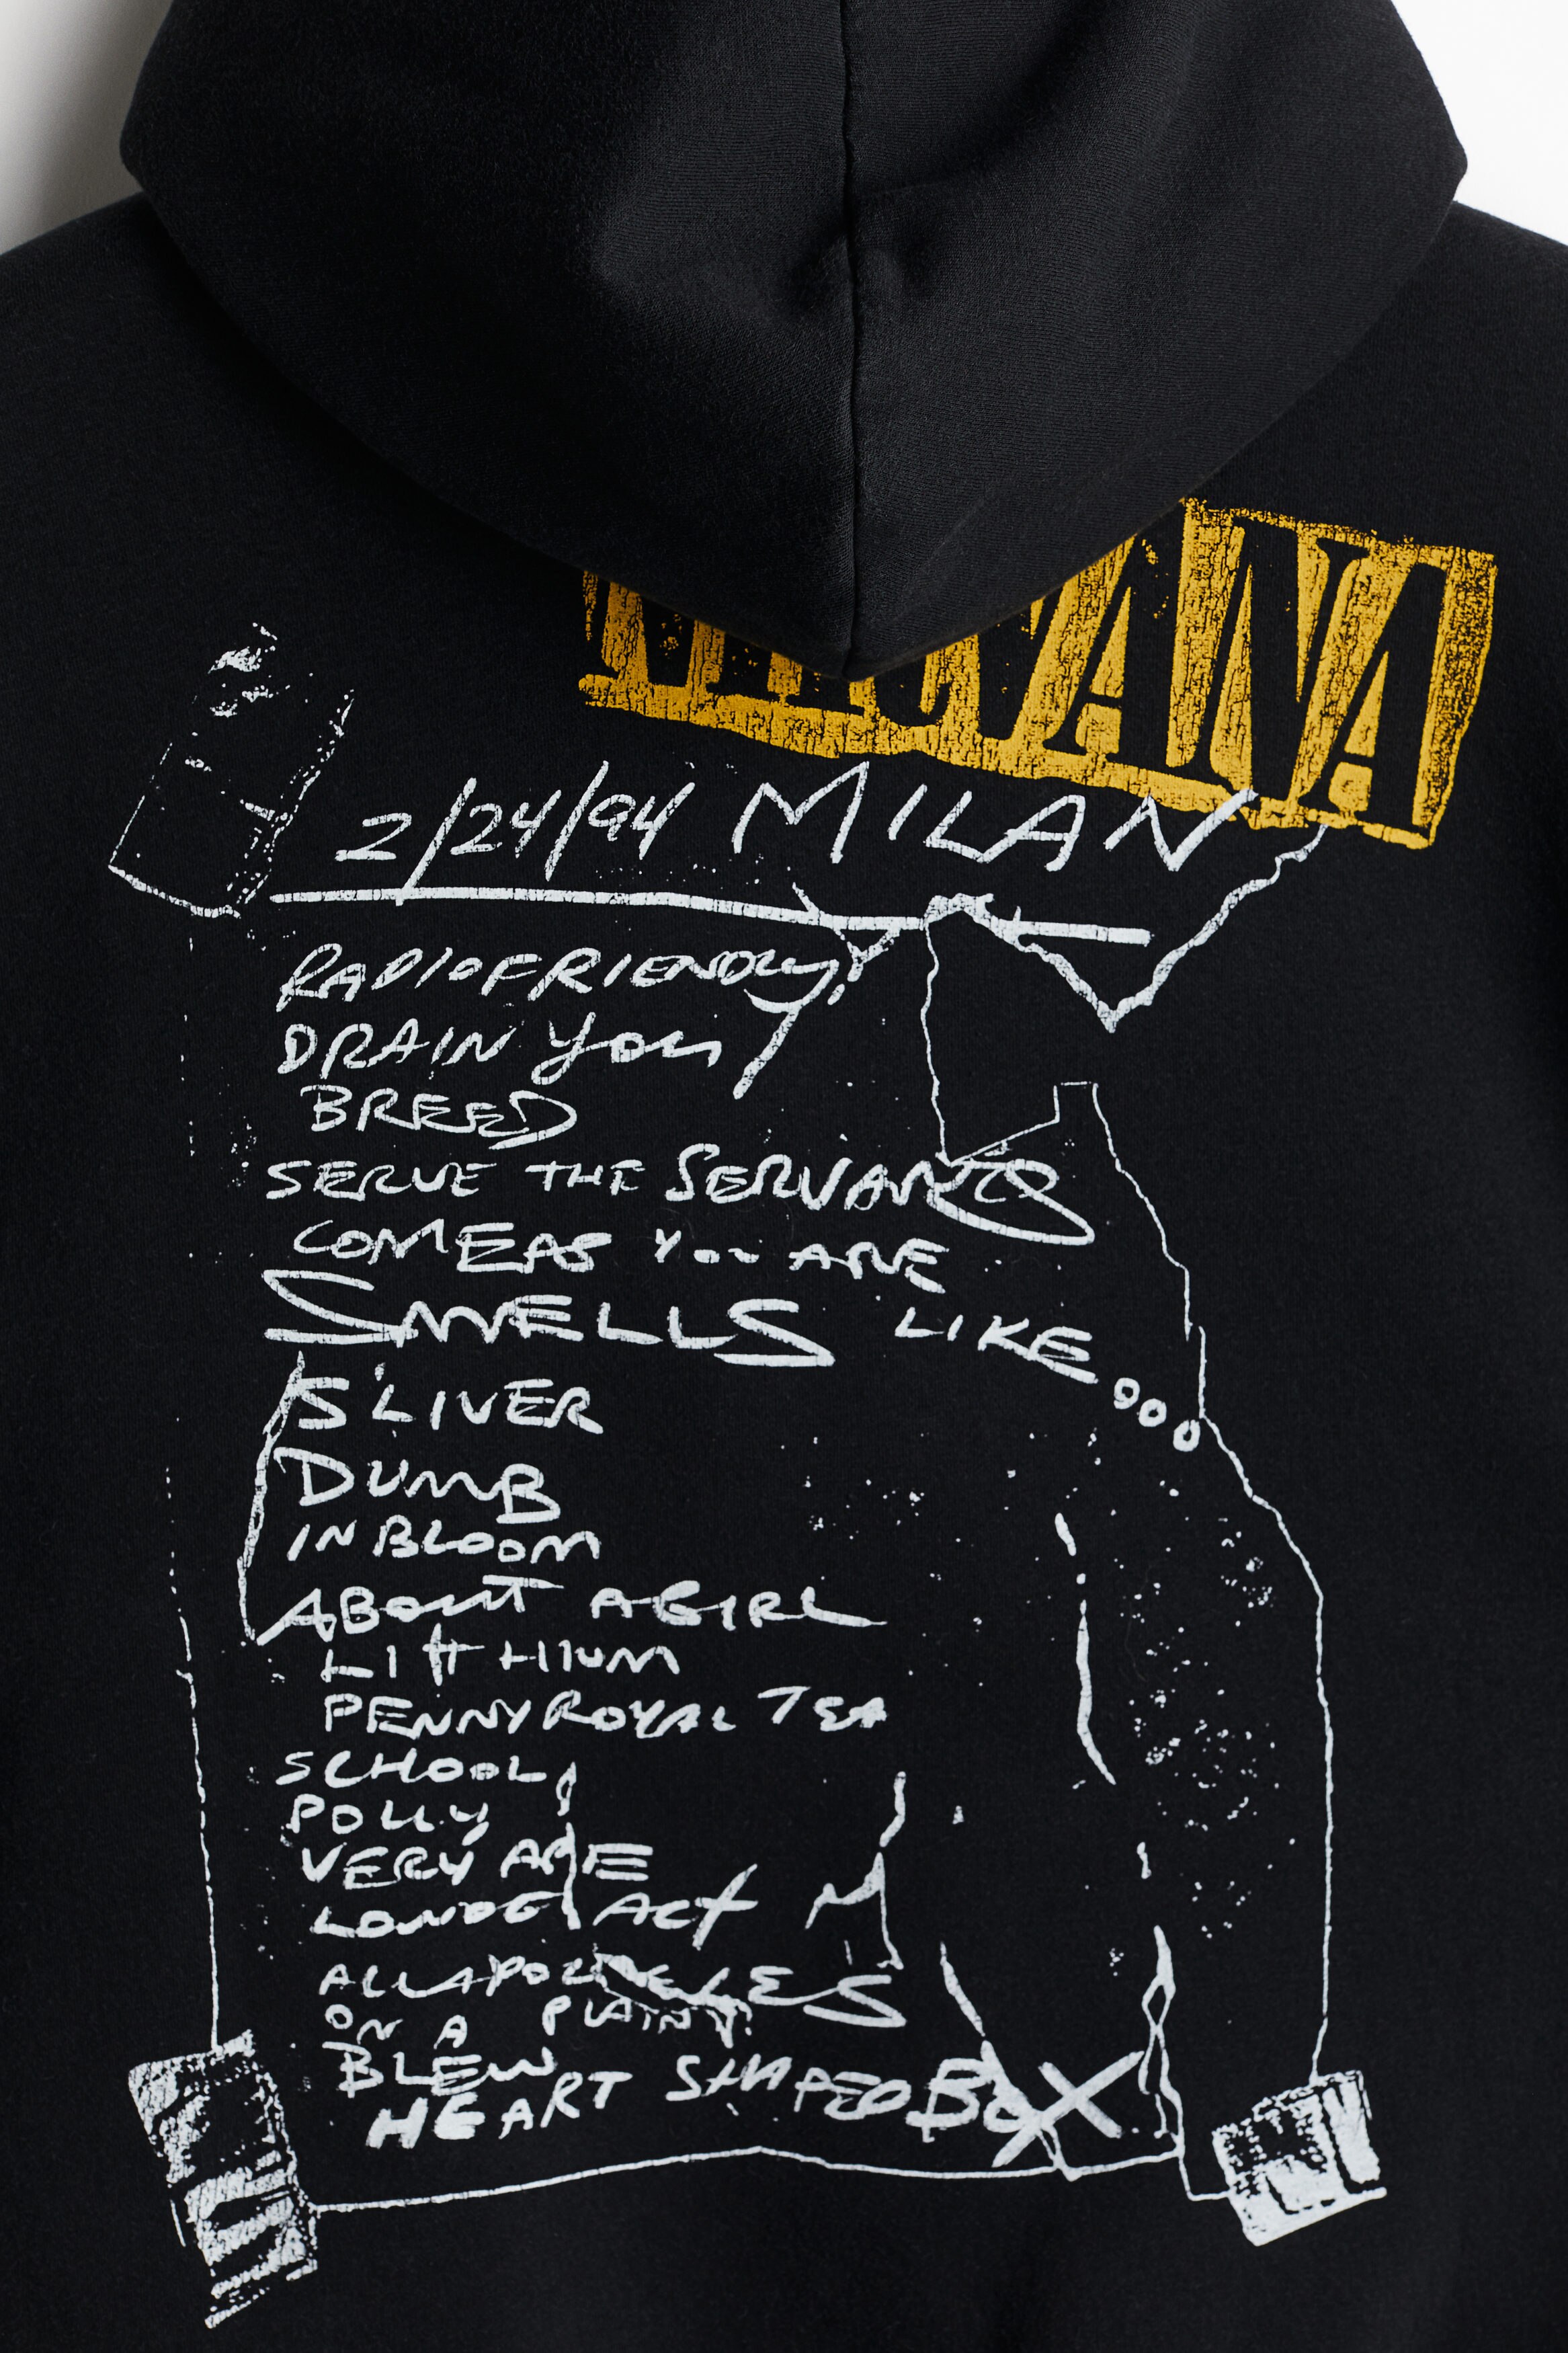 NIRVANA
2/24/94 MILAN
RADIOFRIENDLY
DRAIN YOU
BREED
SERVE THE SERVANTS
COMEAS YOU ARE
SMELLS LIKE...
SLIVER
DUMB
IN BLOOM
ABOUT A GIRL
LITHIUM
PENNYROYAL TEA
SCHOOL
POLLY
VERY APE
LOUNGE ACT
ALLAPOLOGIES
ON A PLAIN
BLEW
HEART SHAPED BOX